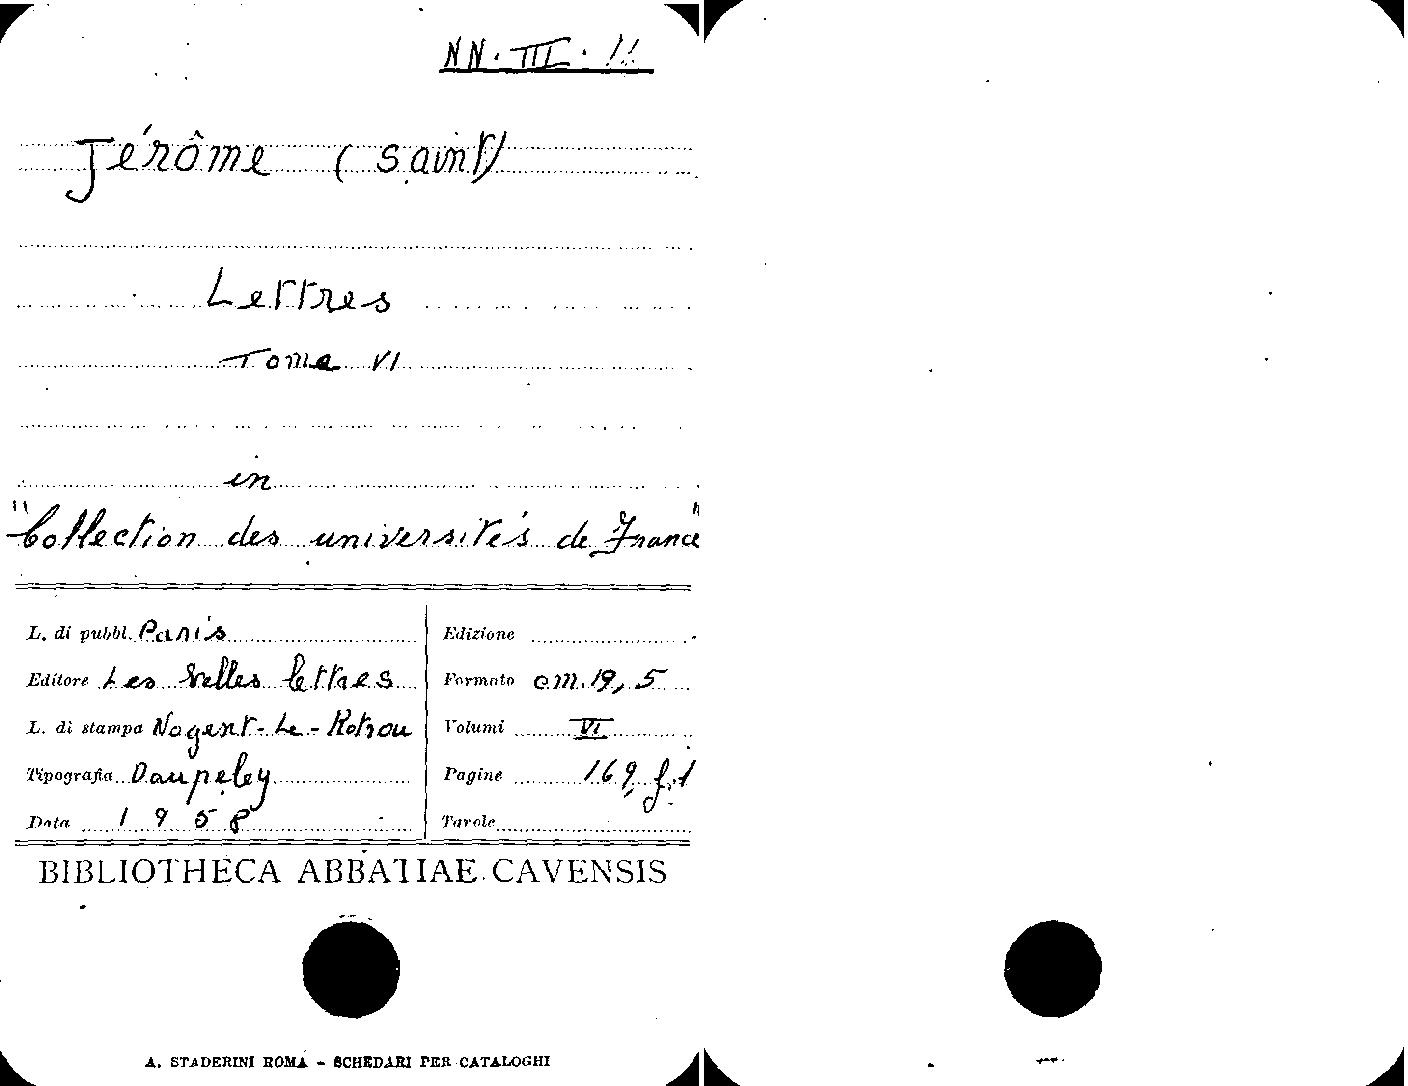 NN. III. 11
Jérôme (saint)
Lettres
Tome VI
in
"Collection des universités de France"
L. di pubbl. Paris
Editore Les belles lettres
L. di stampa Nogent-Le-Rotrou
Tipografia Daupeley
Data 1958
Edizione
Formato cm. 19,5
Volumi VI
Pagine 169, f. 1
Tavole
BIBLIOTHECA ABBATIAE CAVENSIS
A. STADERINI ROMA - SCHEDARI PER CATALOGHI